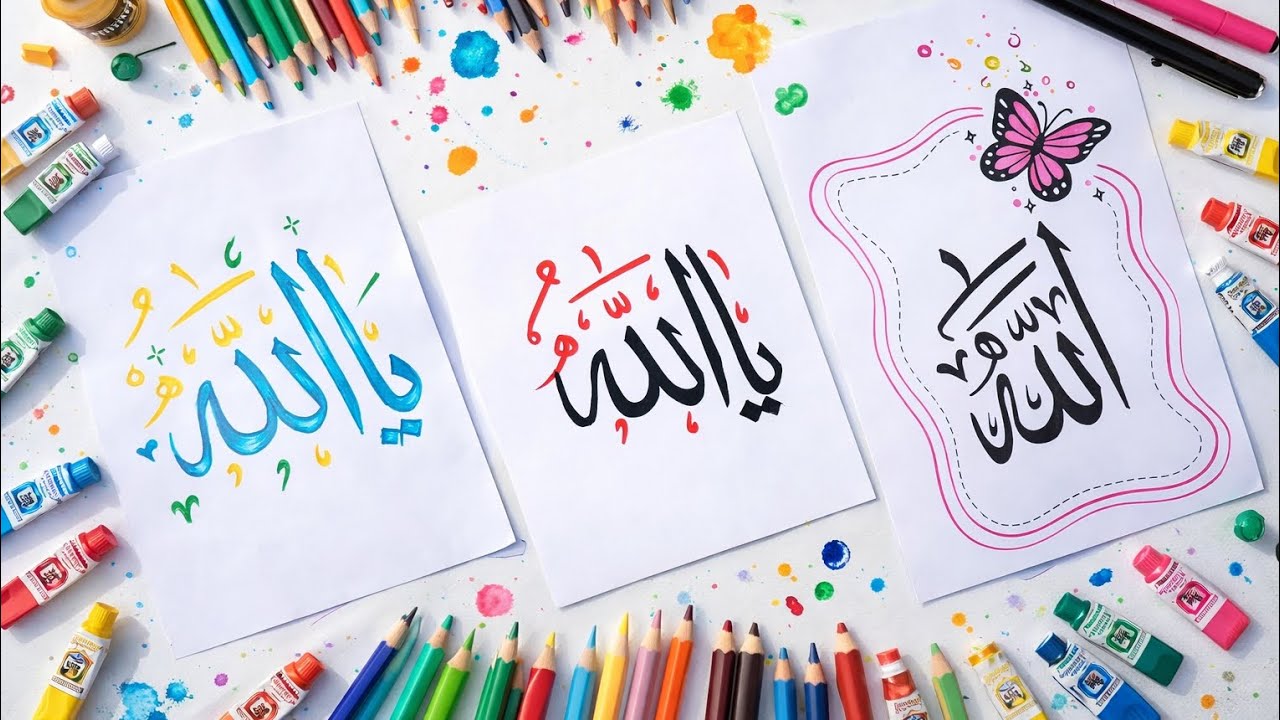 يا اللهُ
يا اللهُ
الله